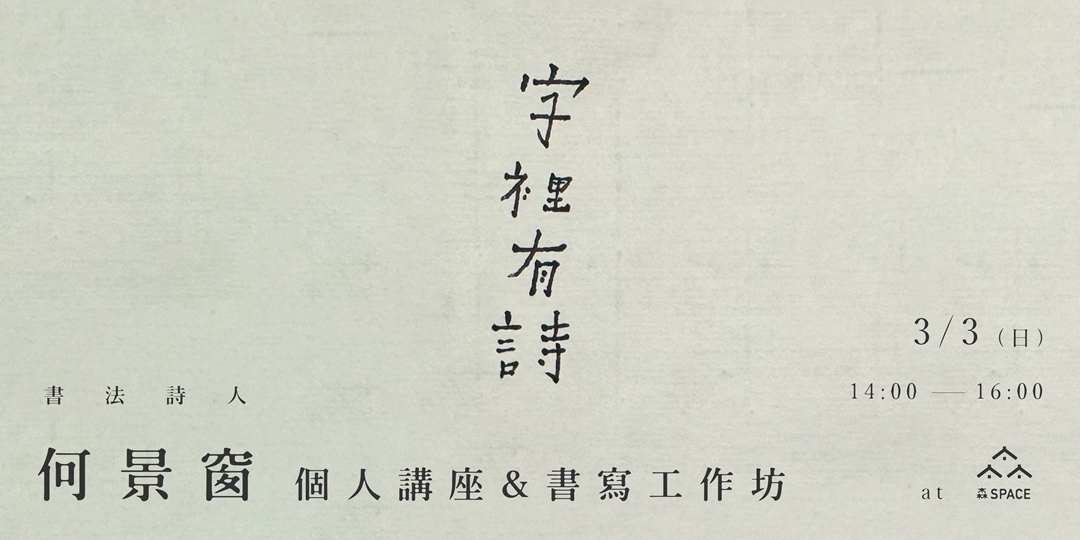 字裡有詩
3/3（日）
14:00 — 16:00
書法詩人
何景窗 個人講座&書寫工作坊
at 森SPACE